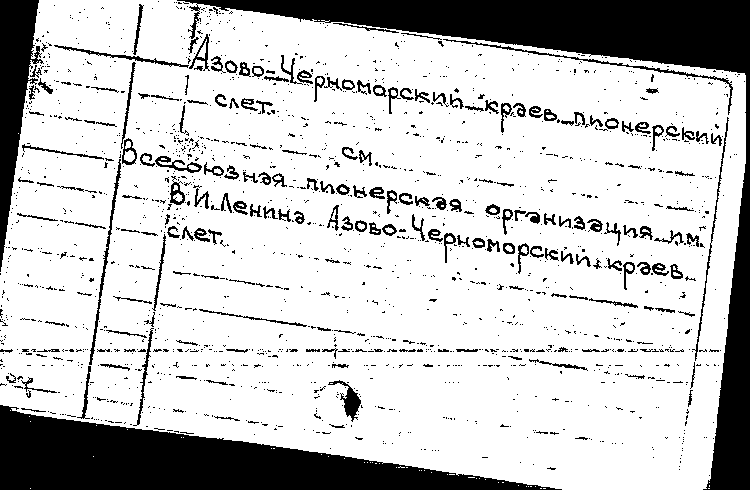 Азово-Черноморский краев. пионерский
слет.
см.
Всесоюзная пионерская организация им.
В.И.Ленина. Азово-Черноморский краев.
слет.